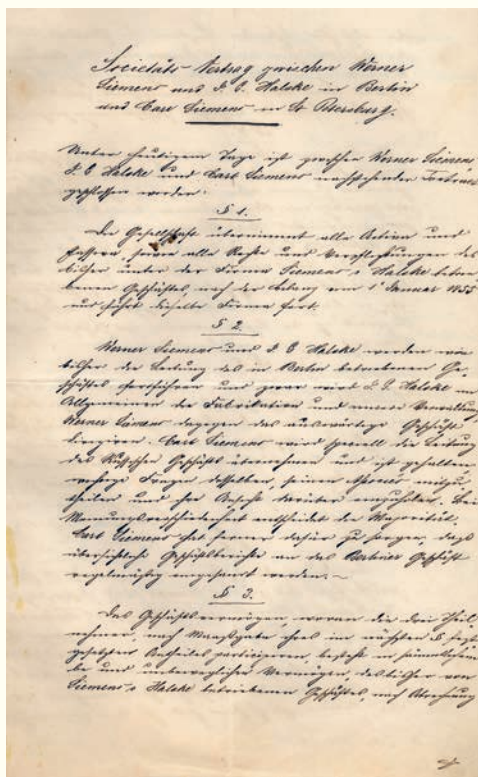 Societäts-Vertrag zwischen Werner
Siemens und J. G. Halske in Berlin
und Carl Siemens in St Petersburg.
Unter heutigem Tage ist zwischen Werner Siemens
J. G Halske und Carl Siemens nachstehender Vertrag
geschlossen worden:
§ 1.
Die Gesellschaft übernimmt alle Activa und
Passiva, sowie alle Rechte und Verpflichtungen des
bisher unter der Firma Siemens & Halske betrie
benen Geschäftes nach der Bilanz vom 1t Januar 1855
und führt dieselbe Firma fort.
§ 2.
Werner Siemens und J. G Halske werden wie
bisher die Leitung des in Berlin betriebenen Ge
schäftes fortführen und zwar wird J. G. Halske im
Allgemeinen die Fabrikation und innere Verwaltung
Werner Siemens dagegen das auswärtige Geschäft
dirigiren. Carl Siemens wird speciell die Leitung
des Russischen Geschäfts übernehmen und ist gehalten
wichtige Fragen desselben, seinen Associés mitzu
theilen und ihre Ansicht darüber einzuholen. Bei
Meinungsverschiedenheit entscheidet die Majorität.
Carl Siemens hat ferner dafür zu sorgen, dass
übersichtliche Geschäftsberichte an das Berliner Geschäft
regelmäßig eingesandt werden. ~
§ 3.
Das Geschäftsvermögen, woran die drei Theil
nehmer, nach Maaßgabe ihres im nächsten § fest
gesetzten Antheiles participiren, besteht in sämmtlichem
und unbeweglichen Vermögen, des bisher von
Siemens & Halske betriebenen Geschäftes, nach Abrechnung